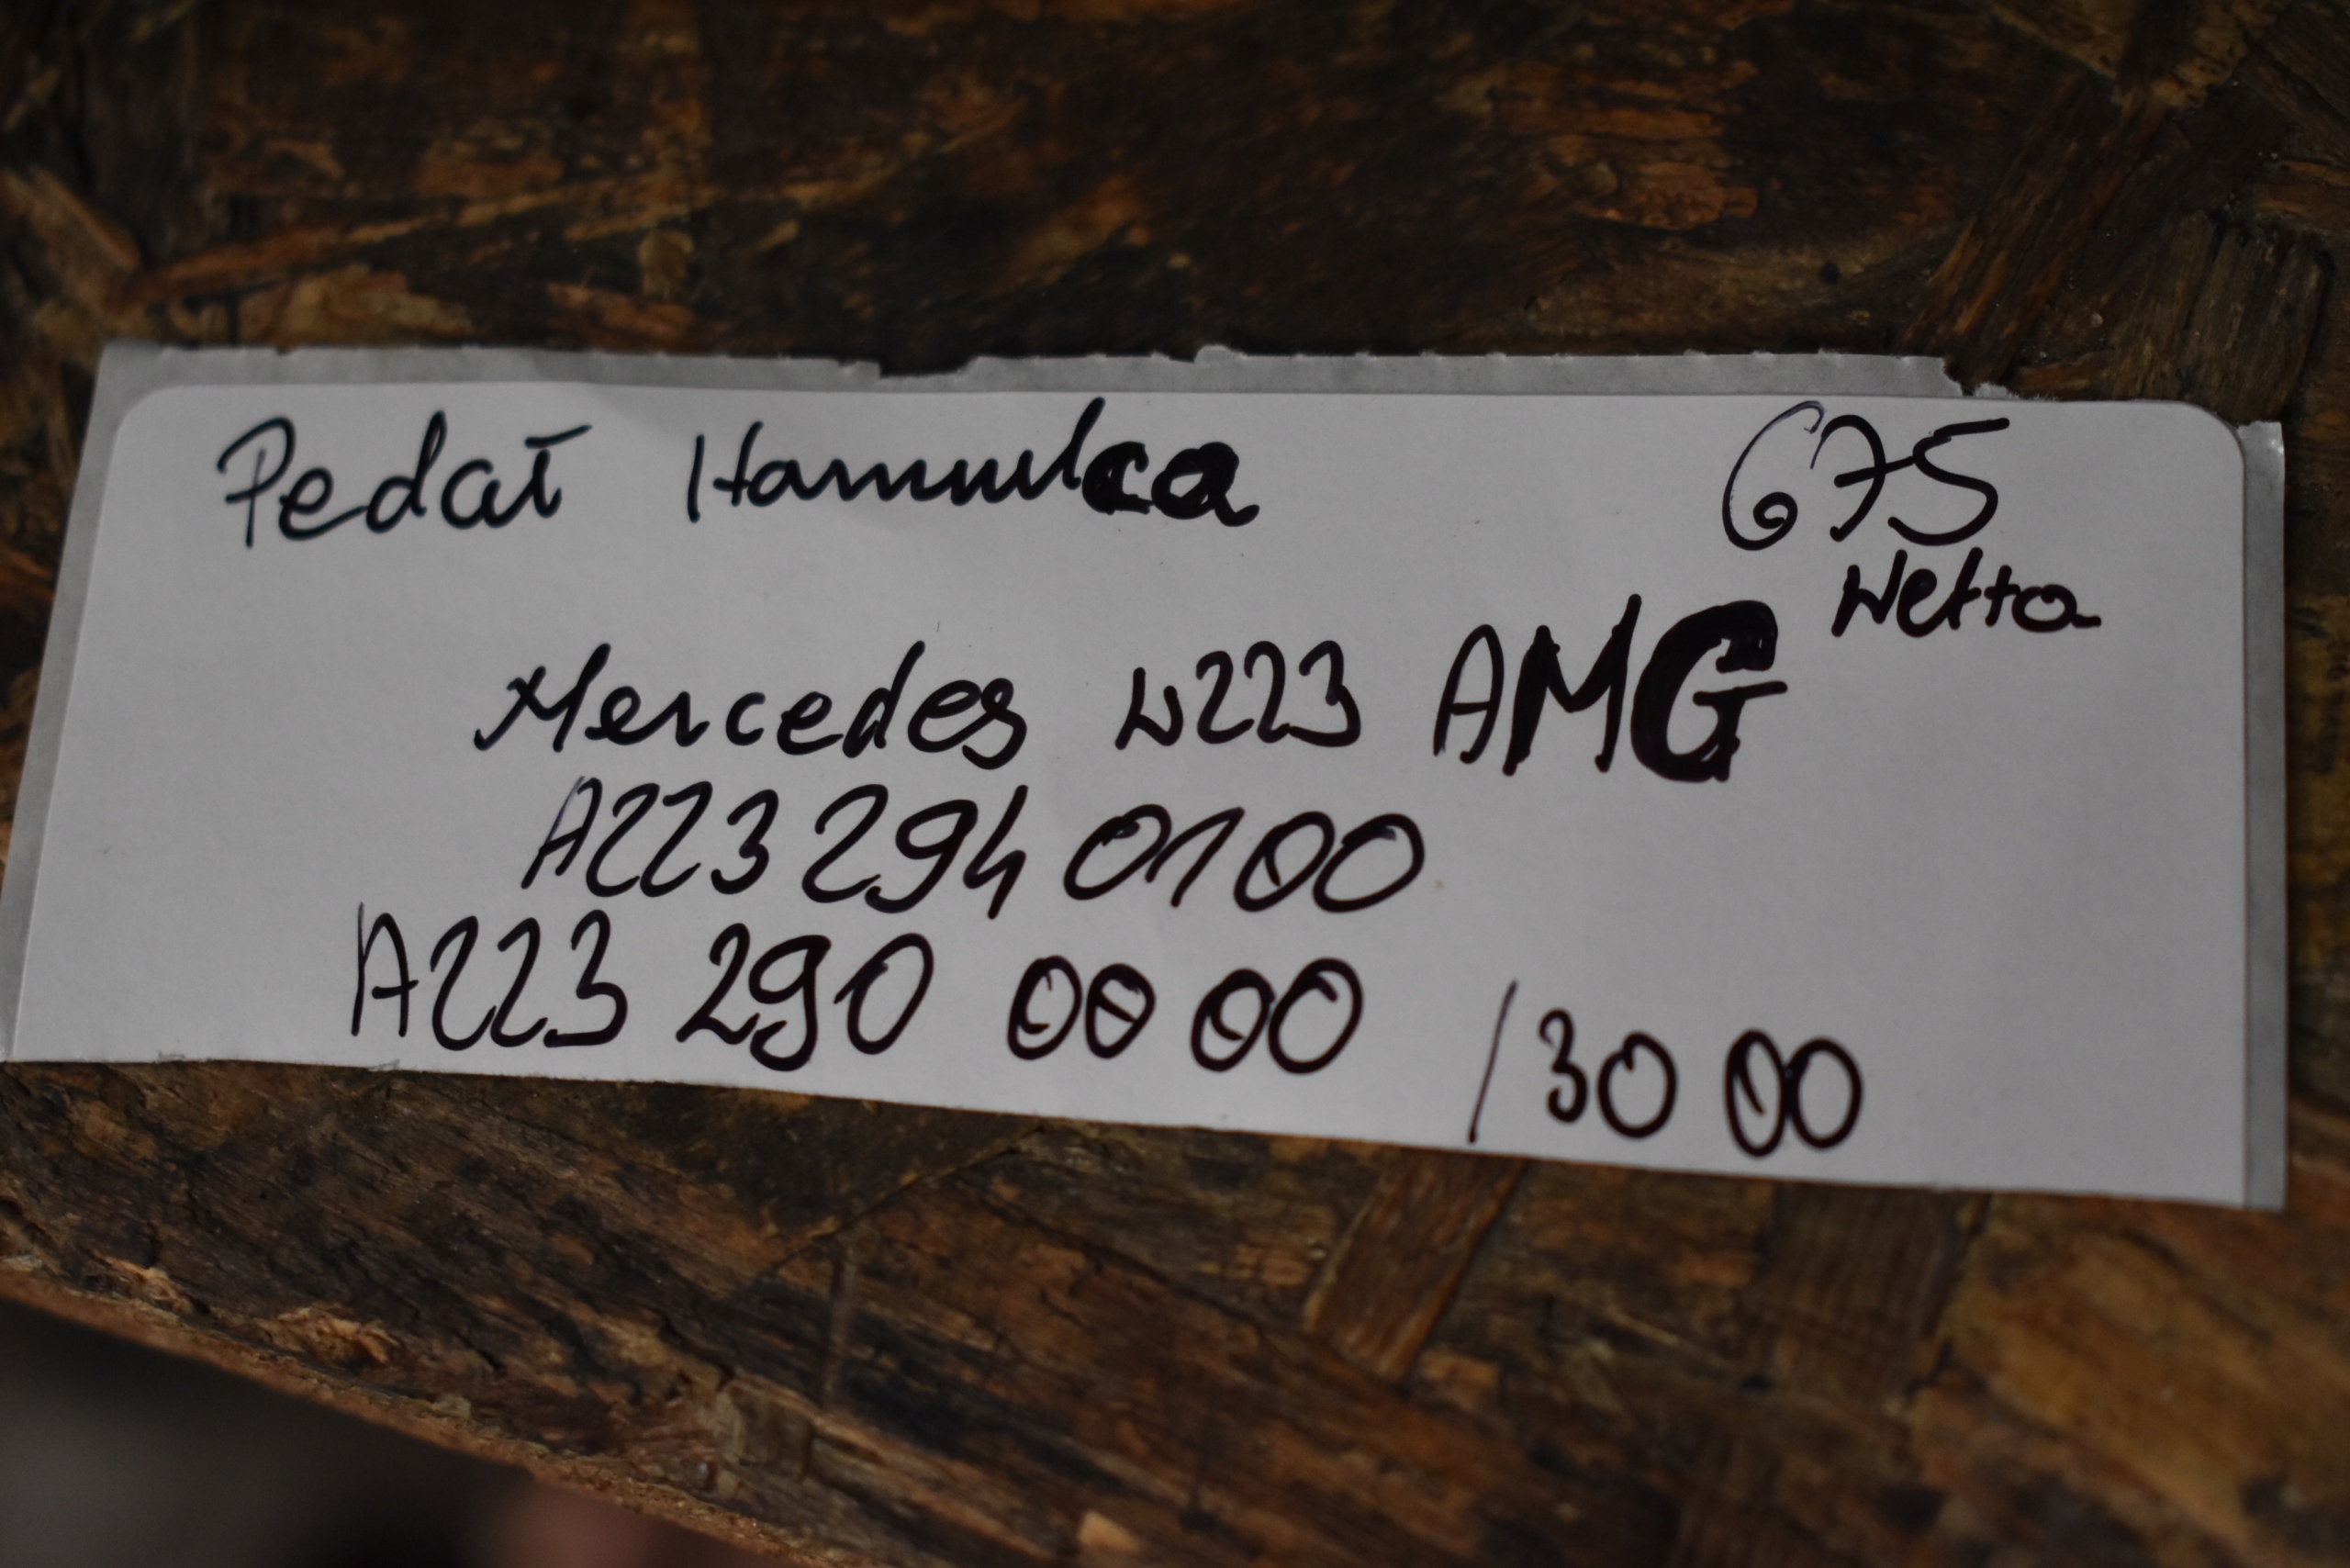 Pedał Hamulca 675
Netto
Mercedes W223 AMG
A223 294 0100
A223 290 00 00 /30 00